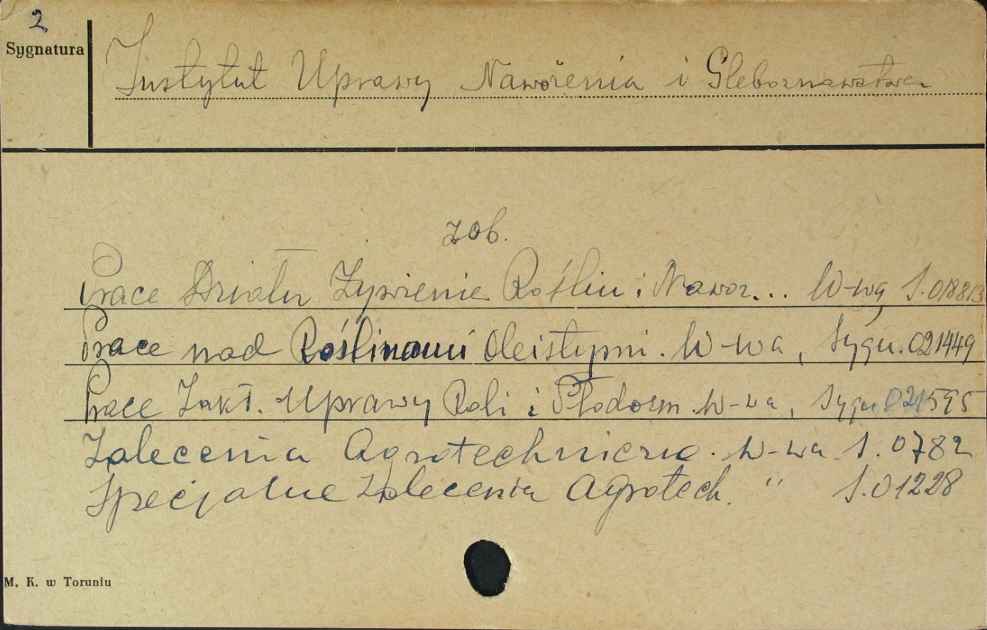 2
Sygnatura
Instytut Uprawy Nawożenia i Gleboznawstwa
zob.
Prace Działu Żywienie Roślin i Nawoż... W-wa, S.018813
Prace nad Roślinami Oleistymi. W-wa, Sygn. 021449
Prace Zakł. Uprawy Roli i Płodozm. W-wa, Sygn. 021595
Zalecenia Agrotechniczne. W-wa S. 0782
Specjalne Zalecenia Agrotech. " S. 01228
M. K. w Toruniu